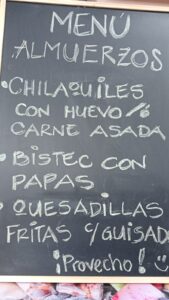 MENÚ
ALMUERZOS
• CHILAQUILES
CON HUEVO %
CARNE ASADA
• BISTEC CON
PAPAS
• QUESADILLAS
FRITAS C/GUISAD
¡Provecho!